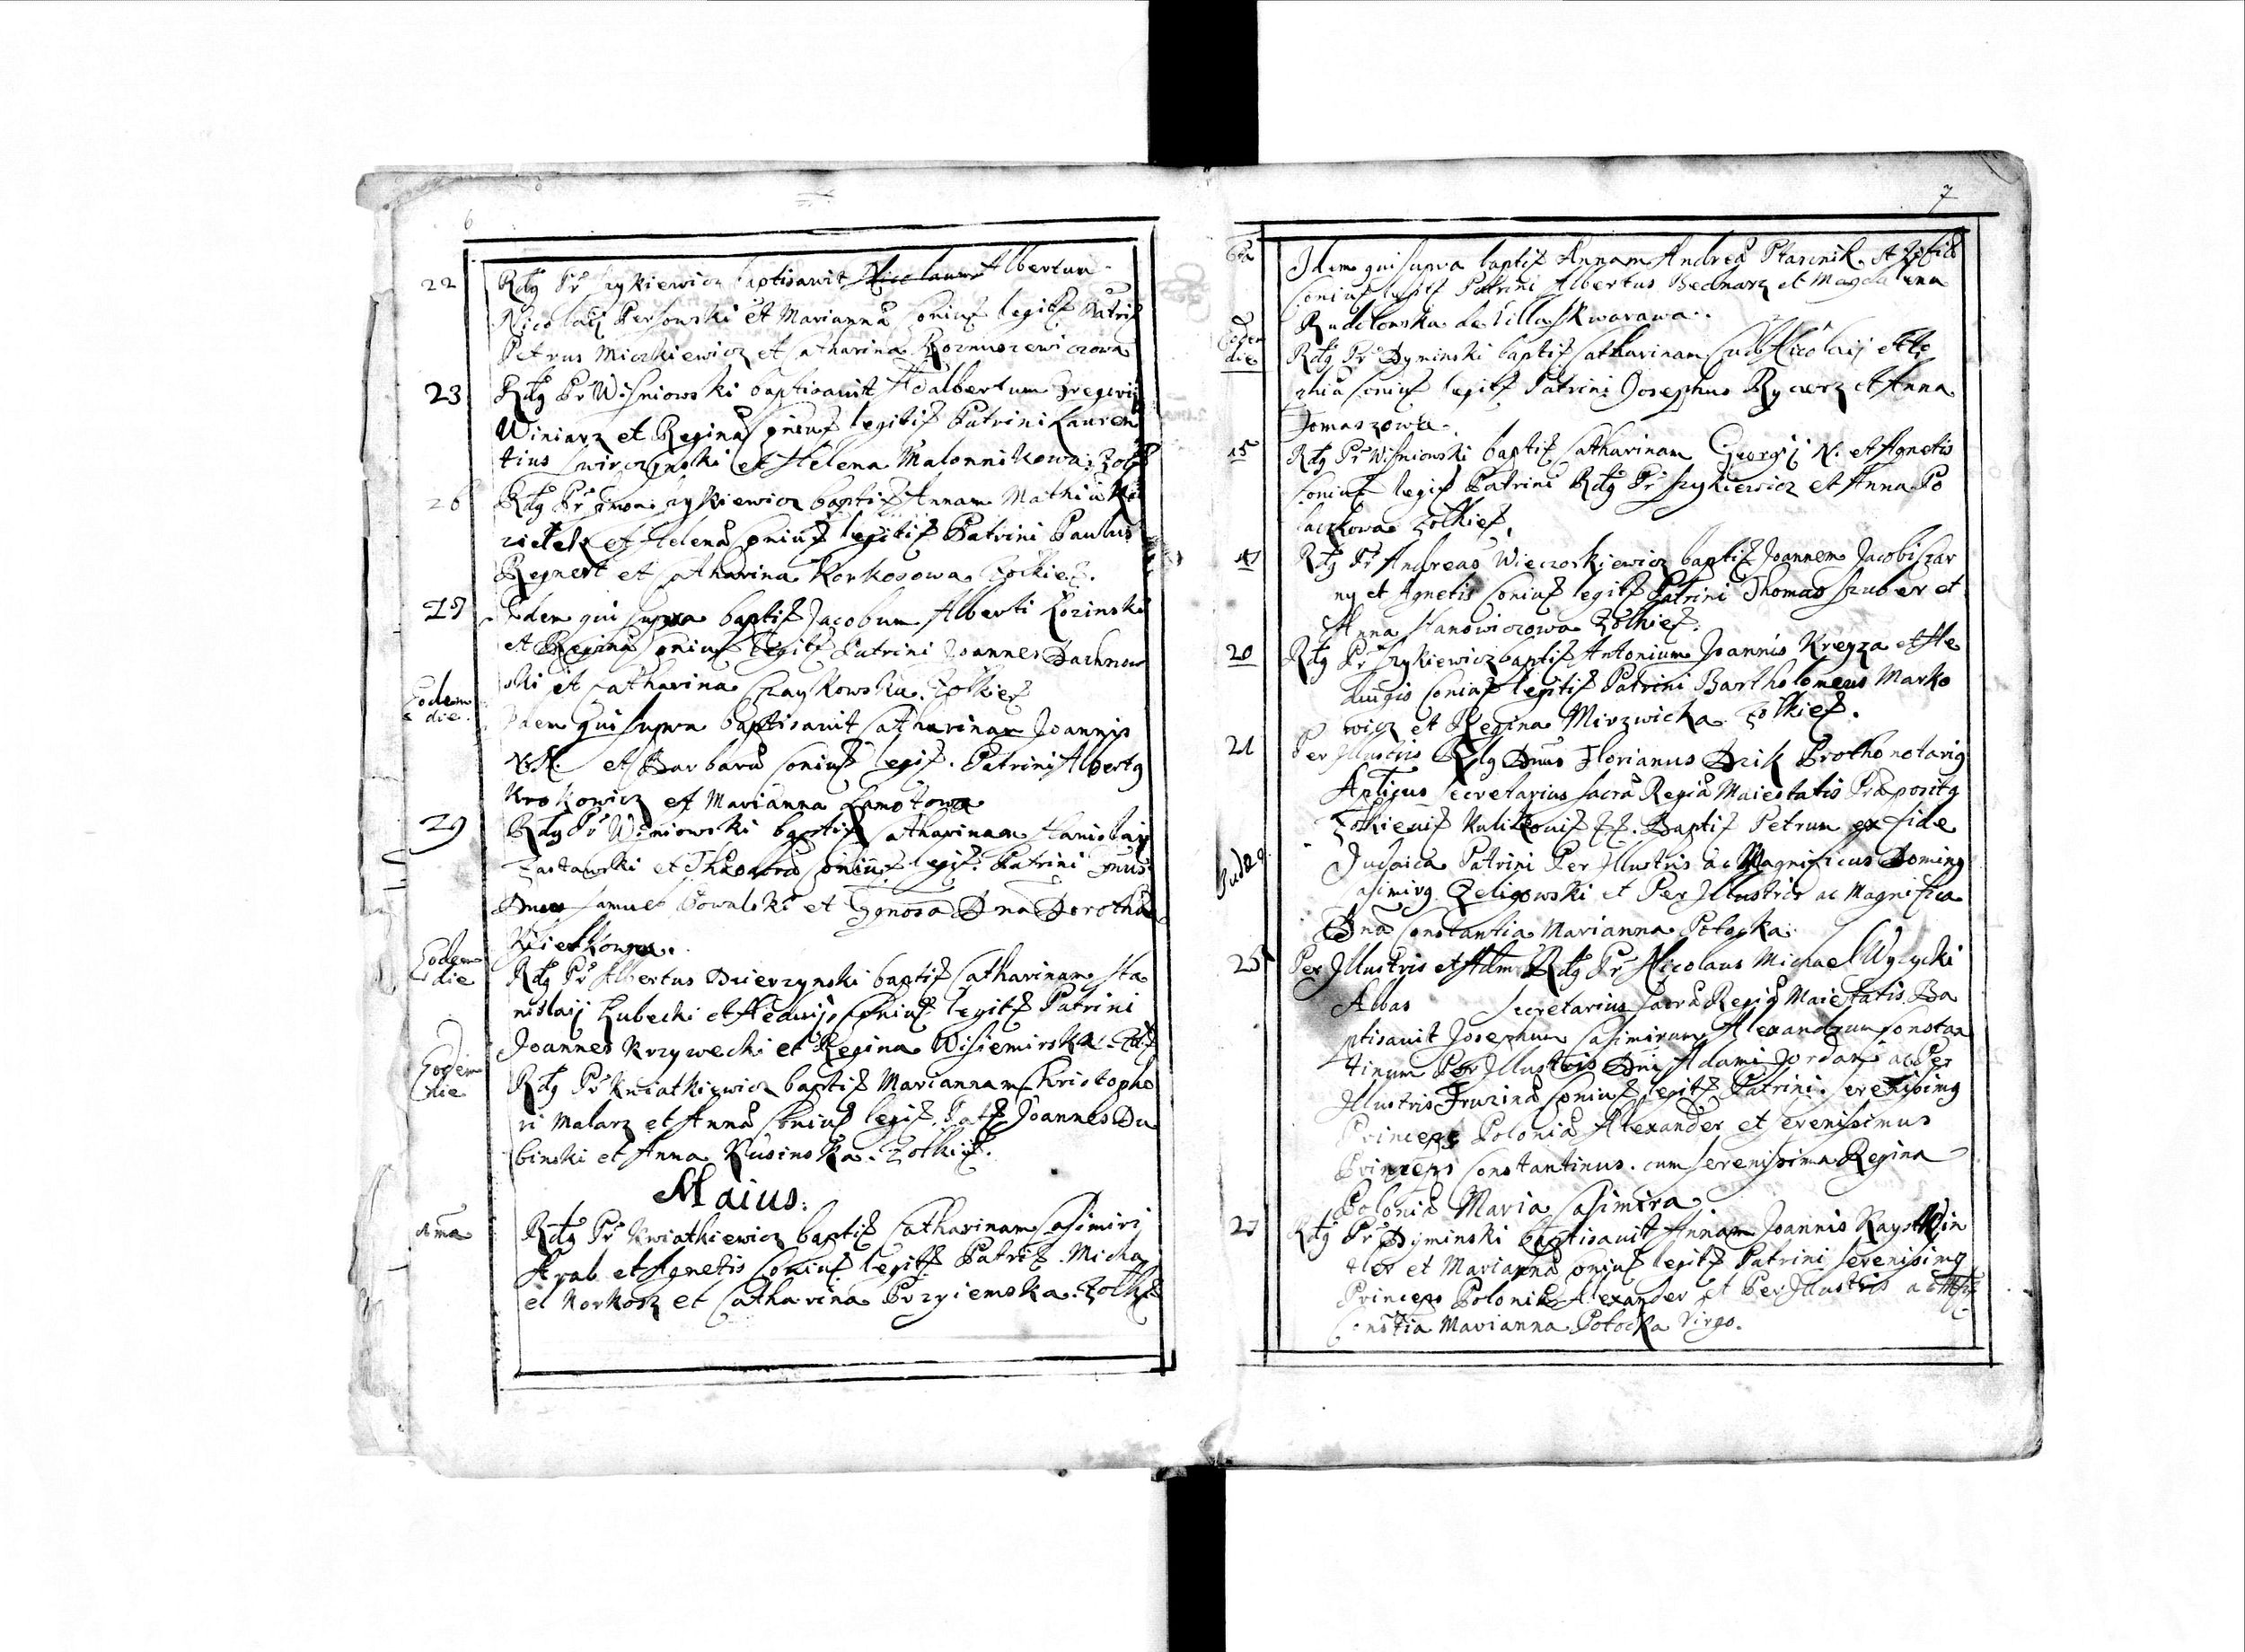 6
22
Rdg Pr Szykiewicz baptisavit Nicolaum Albertum
Nicolaij Persowski et Marianna Coniuf legitf Patrif
Petrus Miczkiewicz et Catharina
23
Rdg Pr Wisniowski baptisauit Adalbertum Gregorij
Winiarz et Regina Coniuf legitif Patrini Lauren
tius Swirczynski et Helena Malonnikowa Zolf
26
Rdg Pr Simon Szykiewicz baptif Annam Mathia
et Helena Coniuf legitif Patrini Paulus
Regnert et Catharina Korkosowa Zolkief.
Idem qui supra baptif Jacobum Alberti Lozinski
et Regina Coniuf legitf Patrini Joannes Dachnow
ski et Catharina Czaykowska Zolkief
Eodem
die.
Idem qui supra baptisauit Catharinam Joannis
N.N. et Barbara Coniuf legif. Patrini Albertg
Krokowicz et Marianna Lamotowa
29
Rdg Pr Wisniowski baptif Catharinam Stanislaij
Zastawski et Theodora Coniuf legif. Patrini
Dnus Samuel Kowalski et Ggnosa Dna Dorothea
Eodem
die
Rdg Pr Albertus Dzierzynski baptif Catharinam Sta
nislaij Lubecki et Hedvigis Coniuf legitf Patrini
Joannes Krzywecki et Regina Wisiemirska Zolf
Eodem
die
Rdg Pr Kwiatkiewicz baptif Mariannam Christopho
ri Malarz et Anna Coniuf legif. Patf Joannes Du
binski et Anna Rusinska. Zolkief.
Maius.
Rdg Pr Kwiatkiewicz baptif Catharinam Casimiri
Arab et Agnetis Coniuf legitf Patrif. Micha
el Korkosz et Catharina Przyiemska. Zolkf
7
Idem qui supra baptif Annam Andrea Ptasznik et Zofia
Coniuf legitf Patrini Albertus Bednarz et Magdalena
Rudelowska de Villa Skwarawa.
Eodem
die
Rdg Pr Dyminski baptif Catharinam Nicolaij et
Coniuf legitf Patrini Josephus Rycerz et Anna
Tomaszowa.
15
Rdg Pr Wisniowski baptif Catharinam Georgij N. et Agnetis
Coniuf legif Patrini Rdg Pr Szykiewicz et Anna Po
laczkowa Zolkief.
Rdg Pr Andreas Wieczorkiewicz baptif Joannem Jacobi Szar
ny et Agnetis Coniuf legitf Patrini Thomas Szuber et
Anna Stanowiczowa Zolkief.
20
Rdg Pr Szykiewicz baptif Antonium Joannis Kregza et He
duigis Coniuf legitif Patrini Bartholomeus Marko
wicz et Regina Mirzwicka Zolkief.
21
Per Jllustris Rdg Dnus Florianus Dzik Prothonotarig
Apticus Secretarius Sacra Regia Maiestatis Prapositg
Zolkieuif Kulikouif ff. Baptif Petrum ex fide
Judaica Patrini Per Jllustris ac Magnificus Doming
Casimirg Zeligowski et Per Jllustris ac Magnifica
Dna Constantia Marianna Potocka.
25
Per Jllustris et Adm Rdg Pr Nicolaus Michael Wyzycki
Abbas Secretarius Sacra Regia Maiestatis Ba
ptisauit Josephum Casimirum Alexandrum Constan
tinum Per Jllustris Dni Adami Jordan ac Per
Jllustris Fruzina Coniuf legitf Patrini Serenissimg
Princeps Polonia Alexander et Serenissimus
Princeps Constantinus cum Serenissima Regina
Polonia Maria Casimira.
27
Rdg Pr Dyminski baptisauit Annam Joannis
et Marianna Coniuf legitf Patrini Serenissimg
Princeps Polonia Alexander et Per Jllustris ac
Marianna Potocka Virgo.